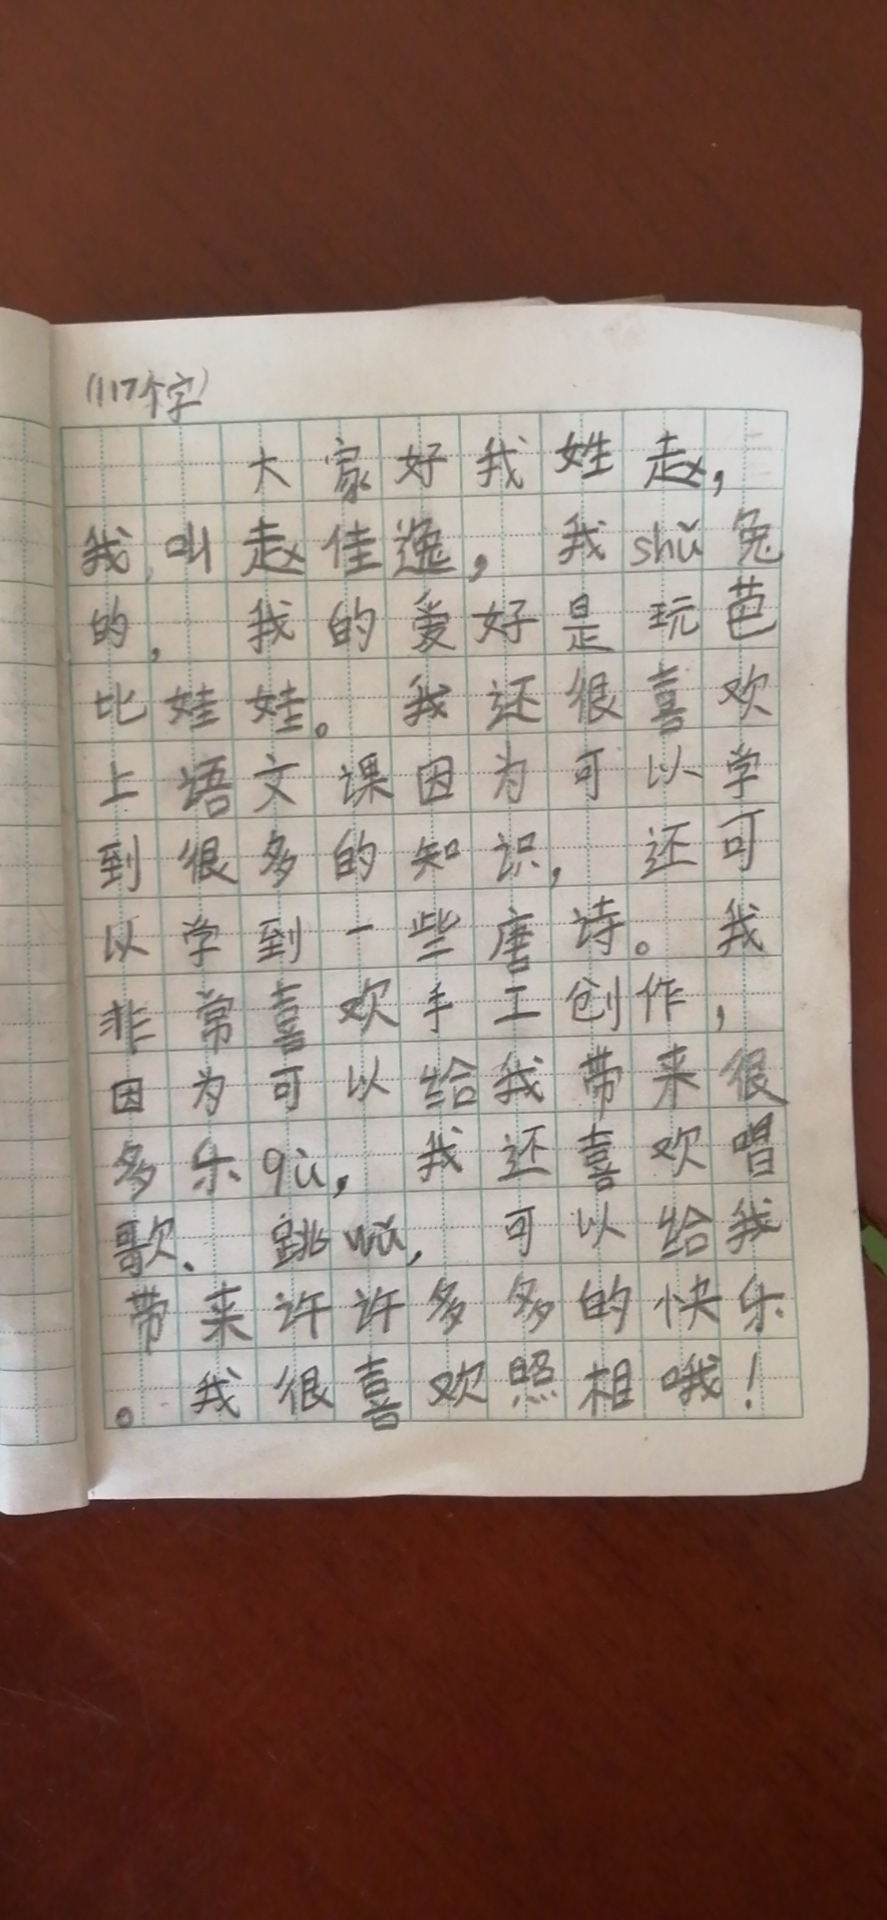 (117个字)
大家好我姓赵，
我叫赵佳逸，我shǔ兔
的，我的爱好是玩芭
比娃娃。我还很喜欢
上语文课因为可以学
到很多的知识，还可
以学到一些唐诗。我
非常喜欢手工创作，
因为可以给我带来很
多乐qù，我还喜欢唱
歌、跳wǔ，可以给我
带来许许多多的快乐
。我很喜欢照相哦！